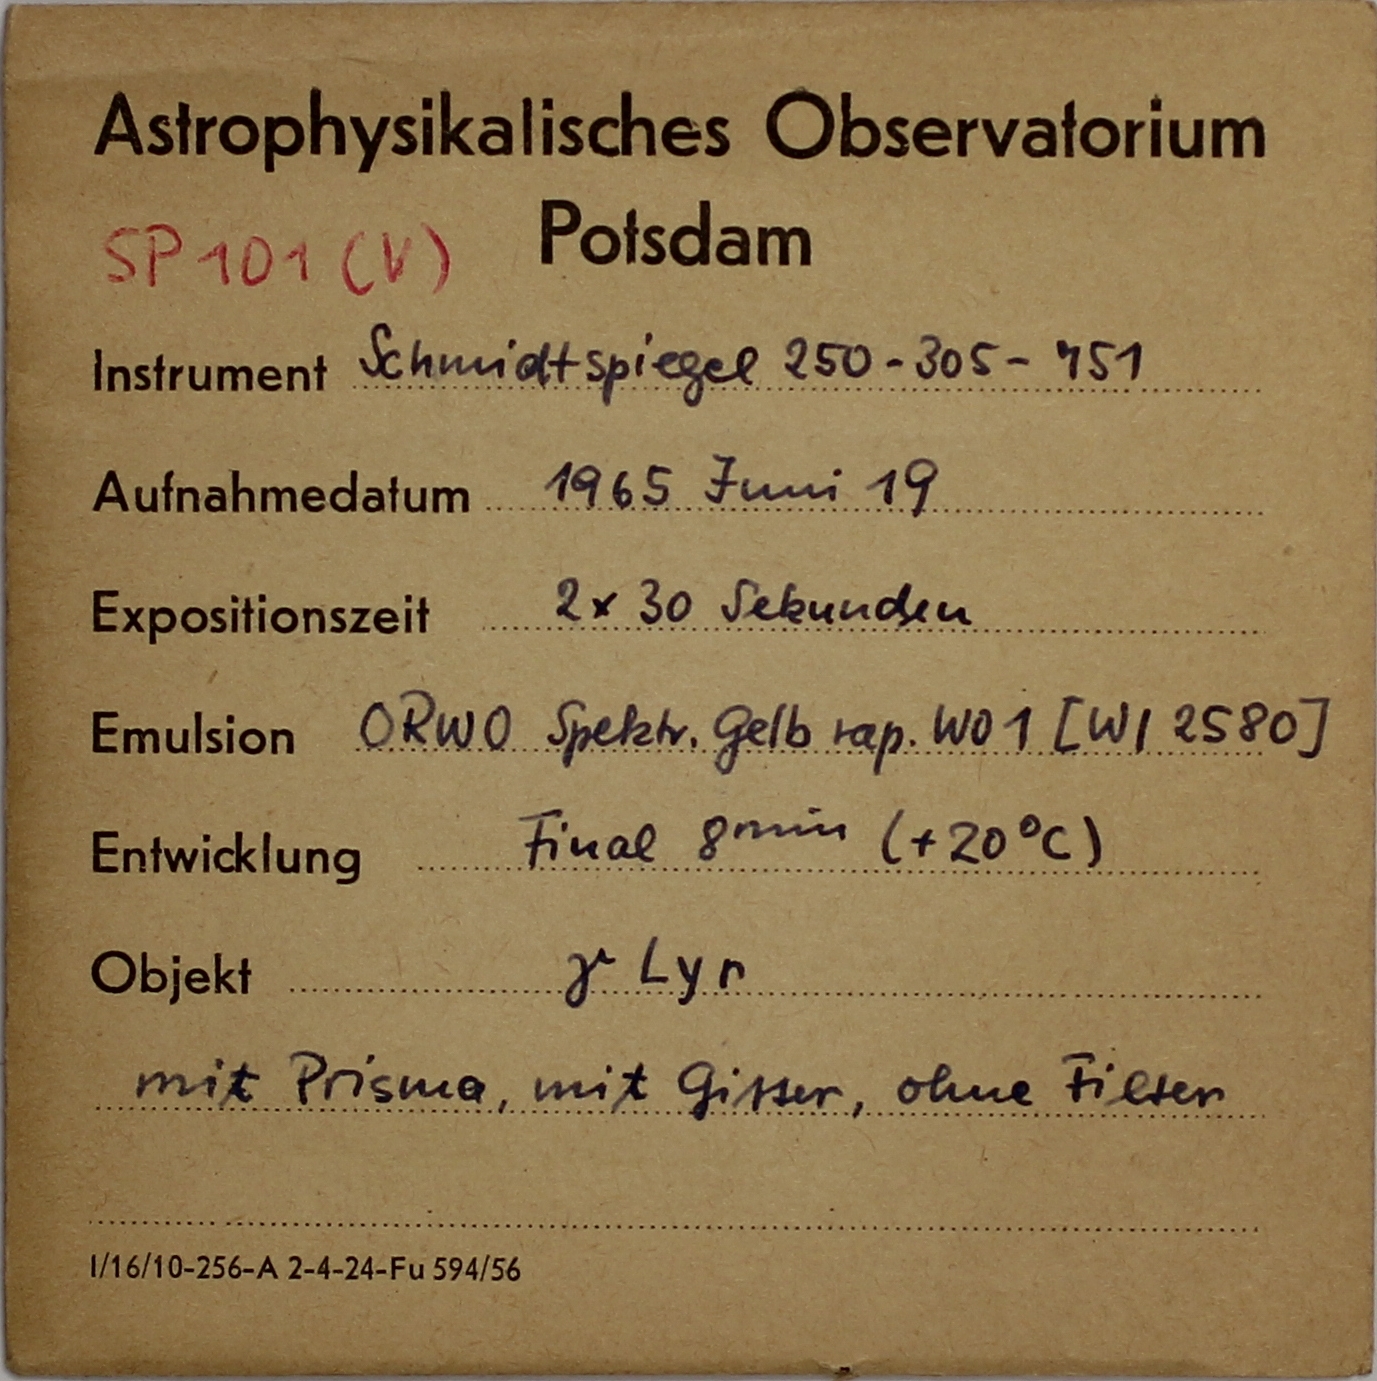 Astrophysikalisches Observatorium
Potsdam
SP 101 (V)
Instrument Schmidtspiegel 250-305-751
Aufnahmedatum 1965 Juni 19
Expositionszeit 2 x 30 Sekunden
Emulsion ORWO Spektr. Gelb rap. WO1 [WI 2580]
Entwicklung Final 8min (+20°C)
Objekt γ Lyr
mit Prisma, mit Gitter, ohne Filter
I/16/10-256-A 2-4-24-Fu 594/56